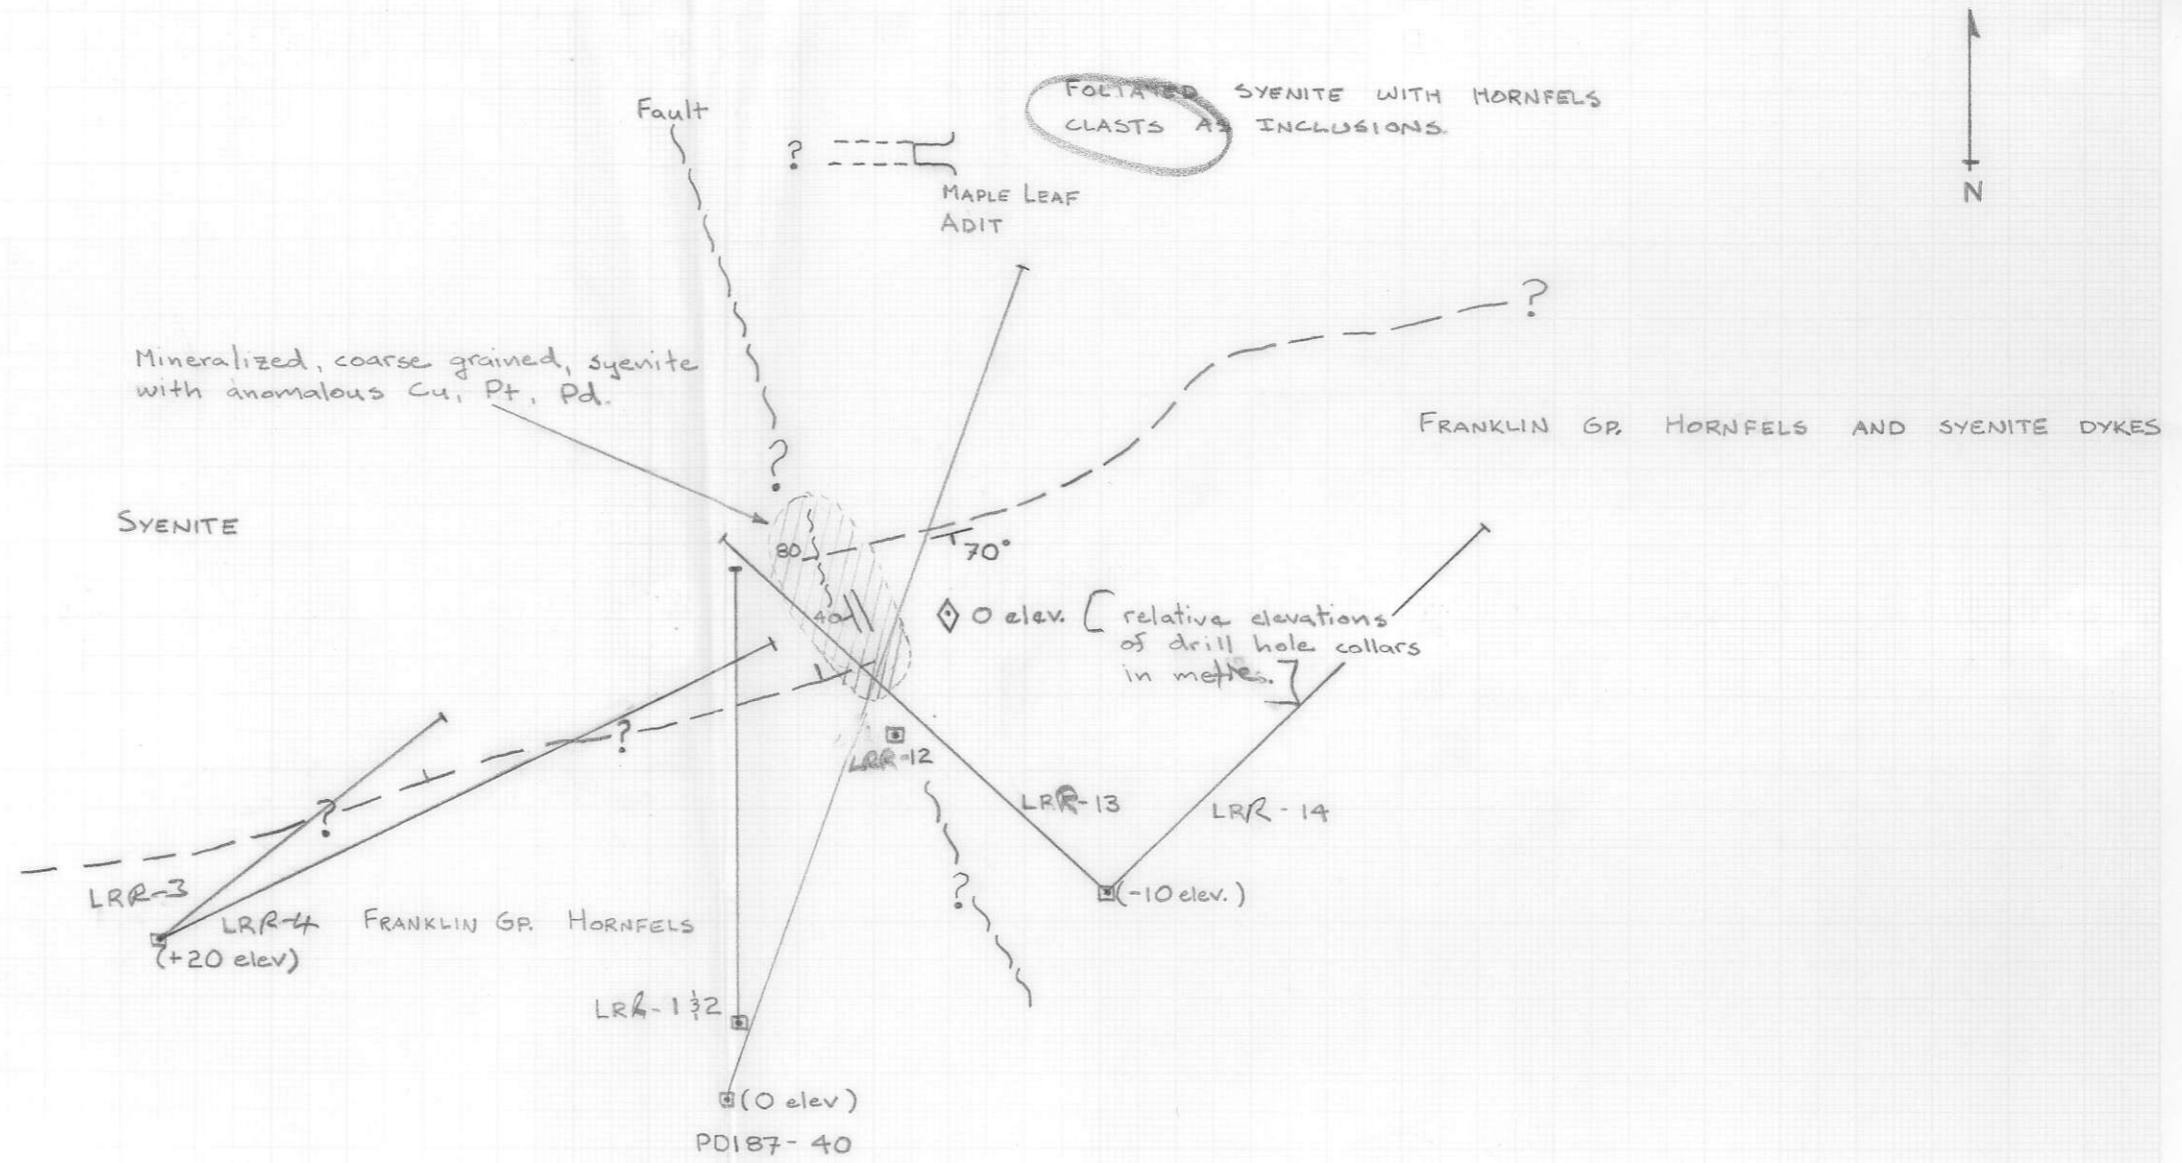 Fault
FOLIATED SYENITE WITH HORNFELS
CLASTS AS INCLUSIONS.
?
MAPLE LEAF
ADIT
N
?
Mineralized, coarse grained, syenite
with anomalous Cu, Pt, Pd.
FRANKLIN GP. HORNFELS AND SYENITE DYKES
?
SYENITE
80
70°
40
0 elev. [ relative elevations
of drill hole collars
in metres. ]
?
LRR-12
?
LRR-13
LRR-14
?
(-10 elev.)
LRR-3
LRR-4
FRANKLIN GP. HORNFELS
(+20 elev)
LRR-1&2
(0 elev)
PDI87-40